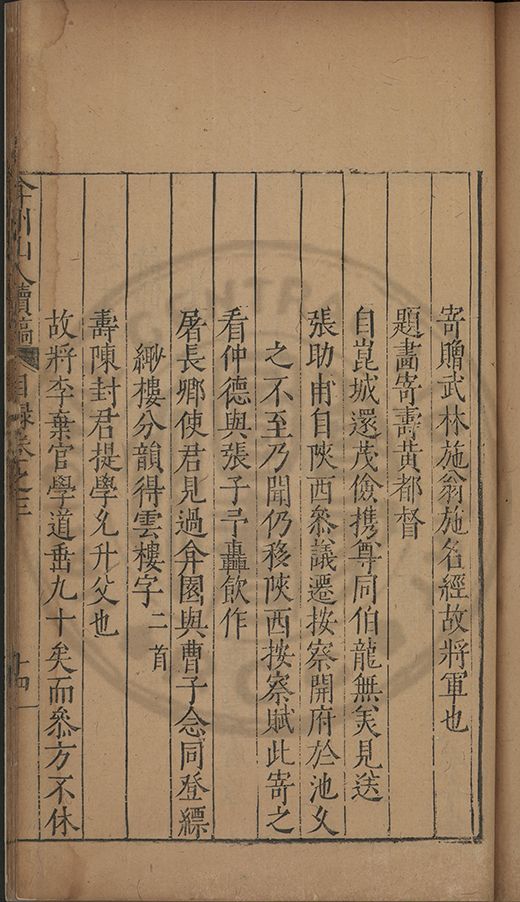 寄贈武林施翁施名經故將軍也
題畫寄壽黃都督
自崑城還茂儉携尊同伯龍無美見送
張助甫自陝西叅議遷按察開府於池久
之不至乃聞仍移陝西按察賦此寄之
看仲德與張子予轟飲作
屠長卿使君見過弇園與曹子念同登縹
緲樓分韻得雲樓字二首
壽陳封君提學允升父也
故將李棄官學道垂九十矣而叅方不休
弇州山人續稿 目録卷之三
十四